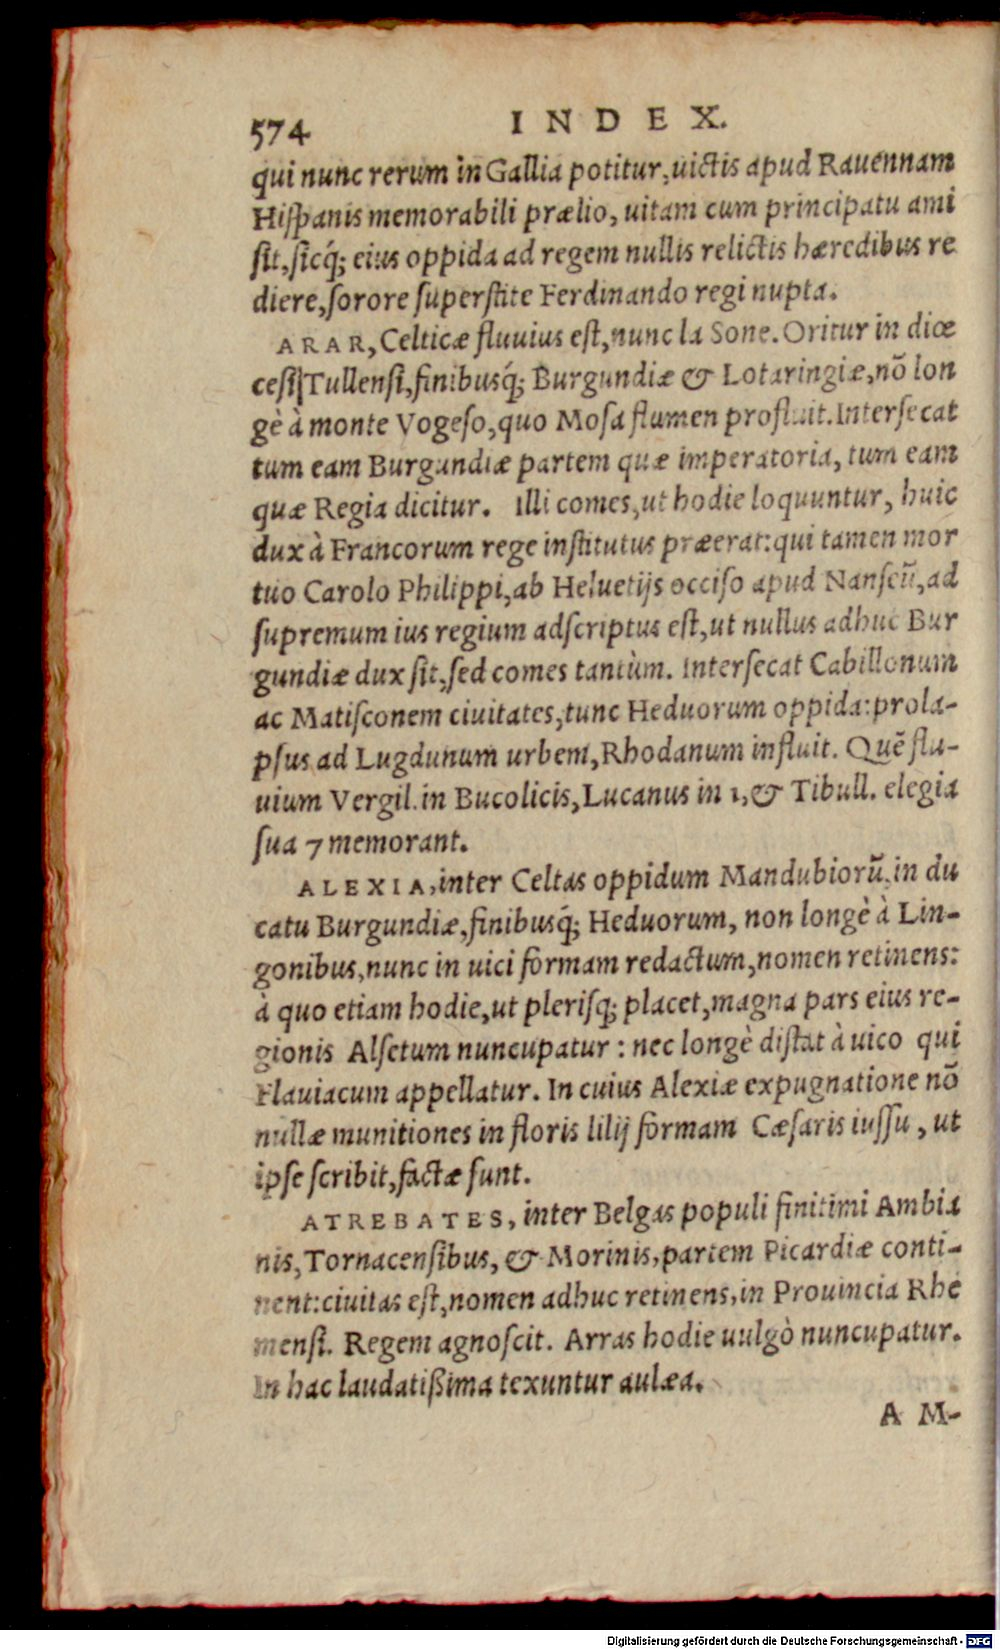 574 INDEX.
qui nunc rerum in Gallia potitur, uictis apud Rauennam
Hiſpanis memorabili prælio, uitam cum principatu ami
ſit, ſicq́; eius oppida ad regem nullis relictis hæredibus re
diere, ſorore ſuperſtite Ferdinando regi nupta.
ARAR, Celticæ fluuius eſt, nunc la Sone. Oritur in diœ
ceſi Tullenſi, finibusq́; Burgundiæ & Lotaringiæ, nō lon
gè à monte Vogeſo, quo Moſa flumen profluit. Interſecat
tum eam Burgundiæ partem quæ imperatoria, tum eam
quæ Regia dicitur. Illi comes, ut hodie loquuntur, huic
dux à Francorum rege inſtitutus præerat: qui tamen mor
tuo Carolo Philippi, ab Heluetijs occiſo apud Nanſeū, ad
ſupremum ius regium adſcriptus eſt, ut nullus adhuc Bur
gundiæ dux ſit, ſed comes tantùm. Interſecat Cabillonum
ac Matiſconem ciuitates, tunc Heduorum oppida: prola-
pſus ad Lugdunum urbem, Rhodanum influit. Quē flu-
uium Vergil. in Bucolicis, Lucanus in 1, & Tibull. elegia
ſua 7 memorant.
ALEXIA, inter Celtas oppidum Mandubiorū, in du
catu Burgundiæ, finibusq́; Heduorum, non longè à Lin-
gonibus, nunc in uici formam redactum, nomen retinens:
à quo etiam hodie, ut pleriſq́; placet, magna pars eius re-
gionis Alſetum nuncupatur: nec longè diſtat à uico qui
Flauiacum appellatur. In cuius Alexiæ expugnatione nō
nullæ munitiones in floris lilij formam Cæſaris iuſſu, ut
ipſe ſcribit, factæ ſunt.
ATREBATES, inter Belgas populi finitimi Ambia
nis, Tornacenſibus, & Morinis, partem Picardiæ conti-
nent: ciuitas eſt, nomen adhuc retinens, in Prouincia Rhe
menſi. Regem agnoſcit. Arras hodie uulgò nuncupatur.
In hac laudatißima texuntur aulæa.
AM-
Digitalisierung gefördert durch die Deutsche Forschungsgemeinschaft - DFG